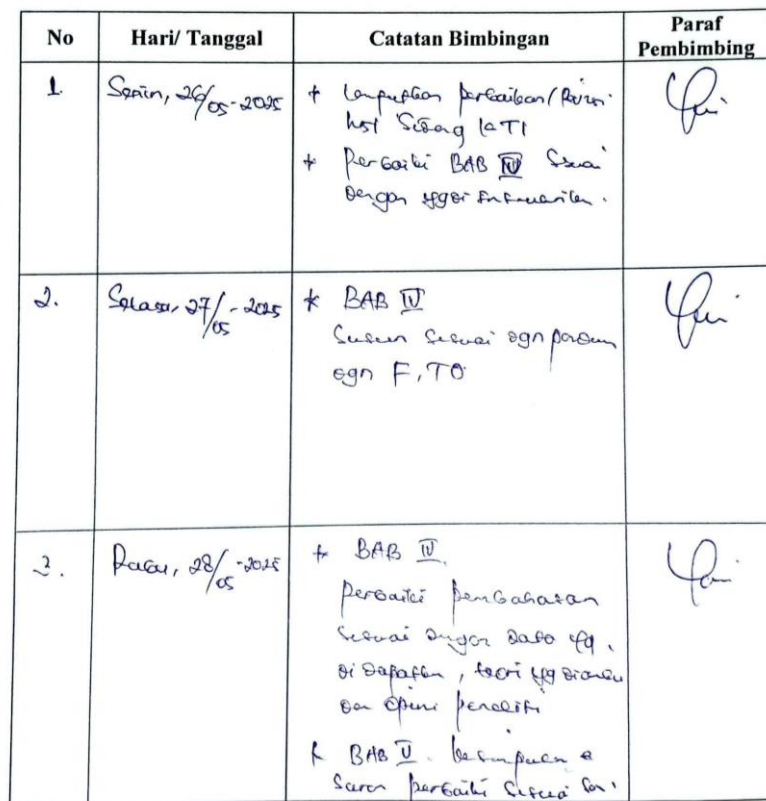 No Hari/ Tanggal Catatan Bimbingan Paraf
Pembimbing
1. Senin, 26/05-2025 + Lanjutkan perbaikan/Revisi
hsl Sidang KTI
+ Perbaiki BAB IV Sesuai
dengan yg di
2. Selasa, 27/05-2025 * BAB IV
Susun sesuai dgn
dgn F, TO
3. Rabu, 28/05-2025 + BAB IV
Perbaiki pembahasan
sesuai dengan data yg
di dapatkan, teori yg
dan opini peneliti
BAB V. kesimpulan &
Saran perbaiki sesuai